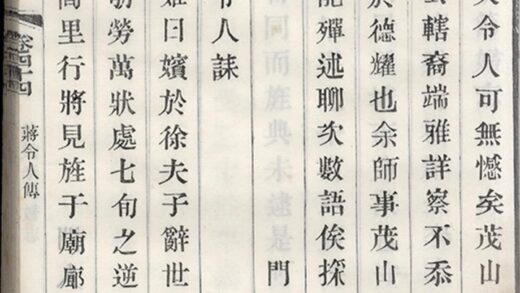 令人可無憾矣茂山
轄裔端雅詳察不忝
於德耀也余師事茂山
能殫述聊次數語俟採
門
令人誄
曰嬪於徐夫子辭世
勞萬狀處七旬之逆
里行將見旌于廟廊
蔣令人傳